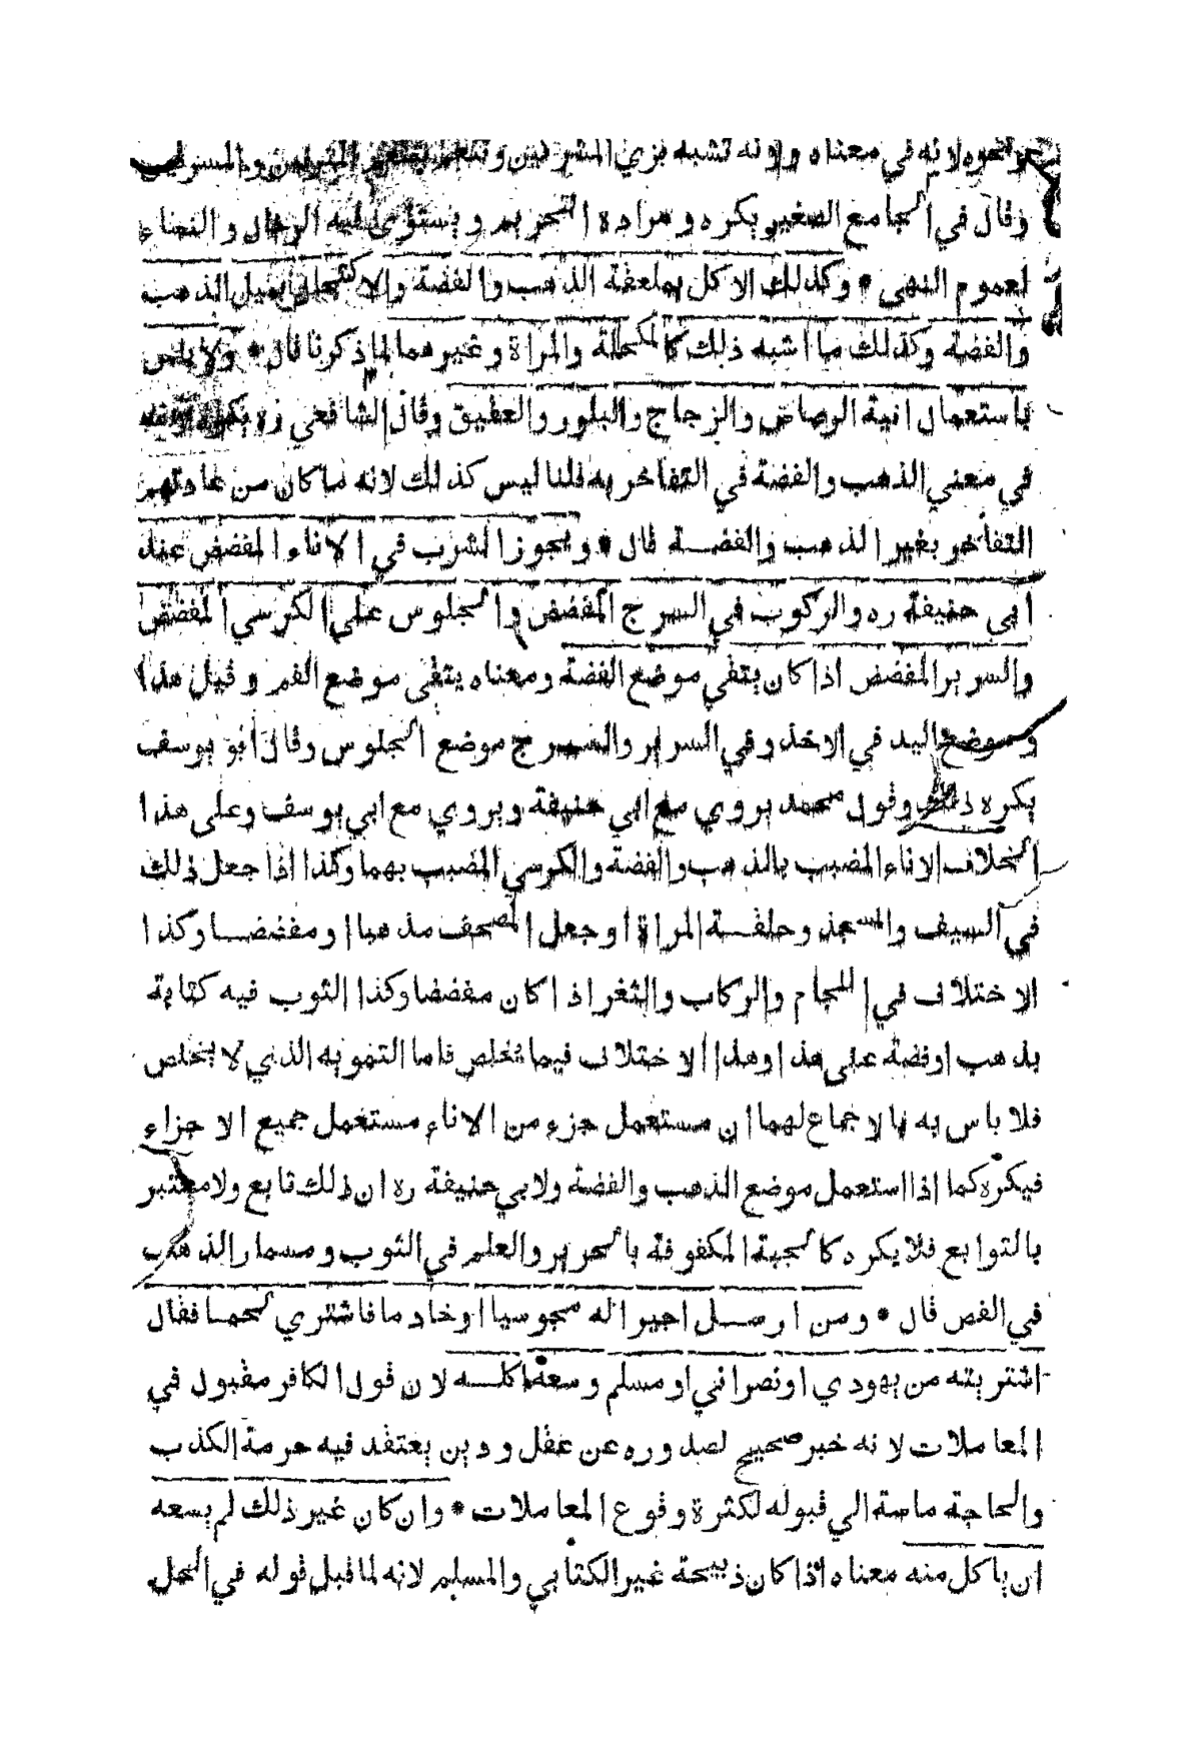 ونحوه لانه في معناه ولانه تشبه بزي المشركين وتنعم بتنعم المترفين والمسرفين
وقال في الجامع الصغير يكره ومراده التحريم ويستوي فيه الرجال والنساء
لعموم النهي * وكذلك الاكل بملعقة الذهب والفضة والاكتحال بميل الذهب
والفضة وكذلك ما اشبه ذلك كالمكحلة والمراة وغيرهما لما ذكرنا قال * ولا باس
باستعمال انية الرصاص والزجاج والبلور والعقيق وقال الشافعي ره يكره لانه
في معني الذهب والفضة في التفاخر به قلنا ليس كذلك لانه ما كان من عادتهم
التفاخر بغير الذهب والفضة قال * ويجوز الشرب في الاناء المفضض عند
ابي حنيفة ره والركوب في السرج المفضض والجلوس علي الكرسي المفضض
والسرير المفضض اذا كان يتقي موضع الفضة ومعناه يتقي موضع الفم وقيل هذا
وموضع اليد في الاخذ وفي السرير والسرج موضع الجلوس وقال ابو يوسف
يكره ذلك وقول محمد يروي مع ابي حنيفة ويروي مع ابي يوسف وعلى هذا
الخلاف الاناء المضبب بالذهب والفضة والكرسي المضبب بهما وكذا اذا جعل ذلك
في السيف والمسجد وحلقة المراة او جعل المصحف مذهبا او مفضضا وكذا
الاختلاف في اللجام والركاب والثفر اذا كان مفضضا وكذا الثوب فيه كتابة
بذهب او فضة على هذا وهذا الاختلاف فيما يخلص فاما التمويه الذي لا يخلص
فلا باس به بالاجماع لهما ان مستعمل جزء من الاناء مستعمل جميع الاجزاء
فيكره كما اذا استعمل موضع الذهب والفضة ولابي حنيفة ره ان ذلك تابع ولا معتبر
بالتوابع فلا يكره كالجبة المكفوفة بالحرير والعلم في الثوب ومسمار الذهب
في الفص قال * ومن ارسل اجيرا له مجوسيا او خادما فاشتري لحما فقال
اشتريته من يهودي او نصراني او مسلم وسعه اكله لان قول الكافر مقبول في
المعاملات لانه خبر صحيح لصدوره عن عقل ودين يعتقد فيه حرمة الكذب
والحاجة ماسة الي قبوله لكثرة وقوع المعاملات * وان كان غير ذلك لم يسعه
ان ياكل منه معناه اذا كان ذبيحة غير الكتابي والمسلم لانه لما قبل قوله في الحل